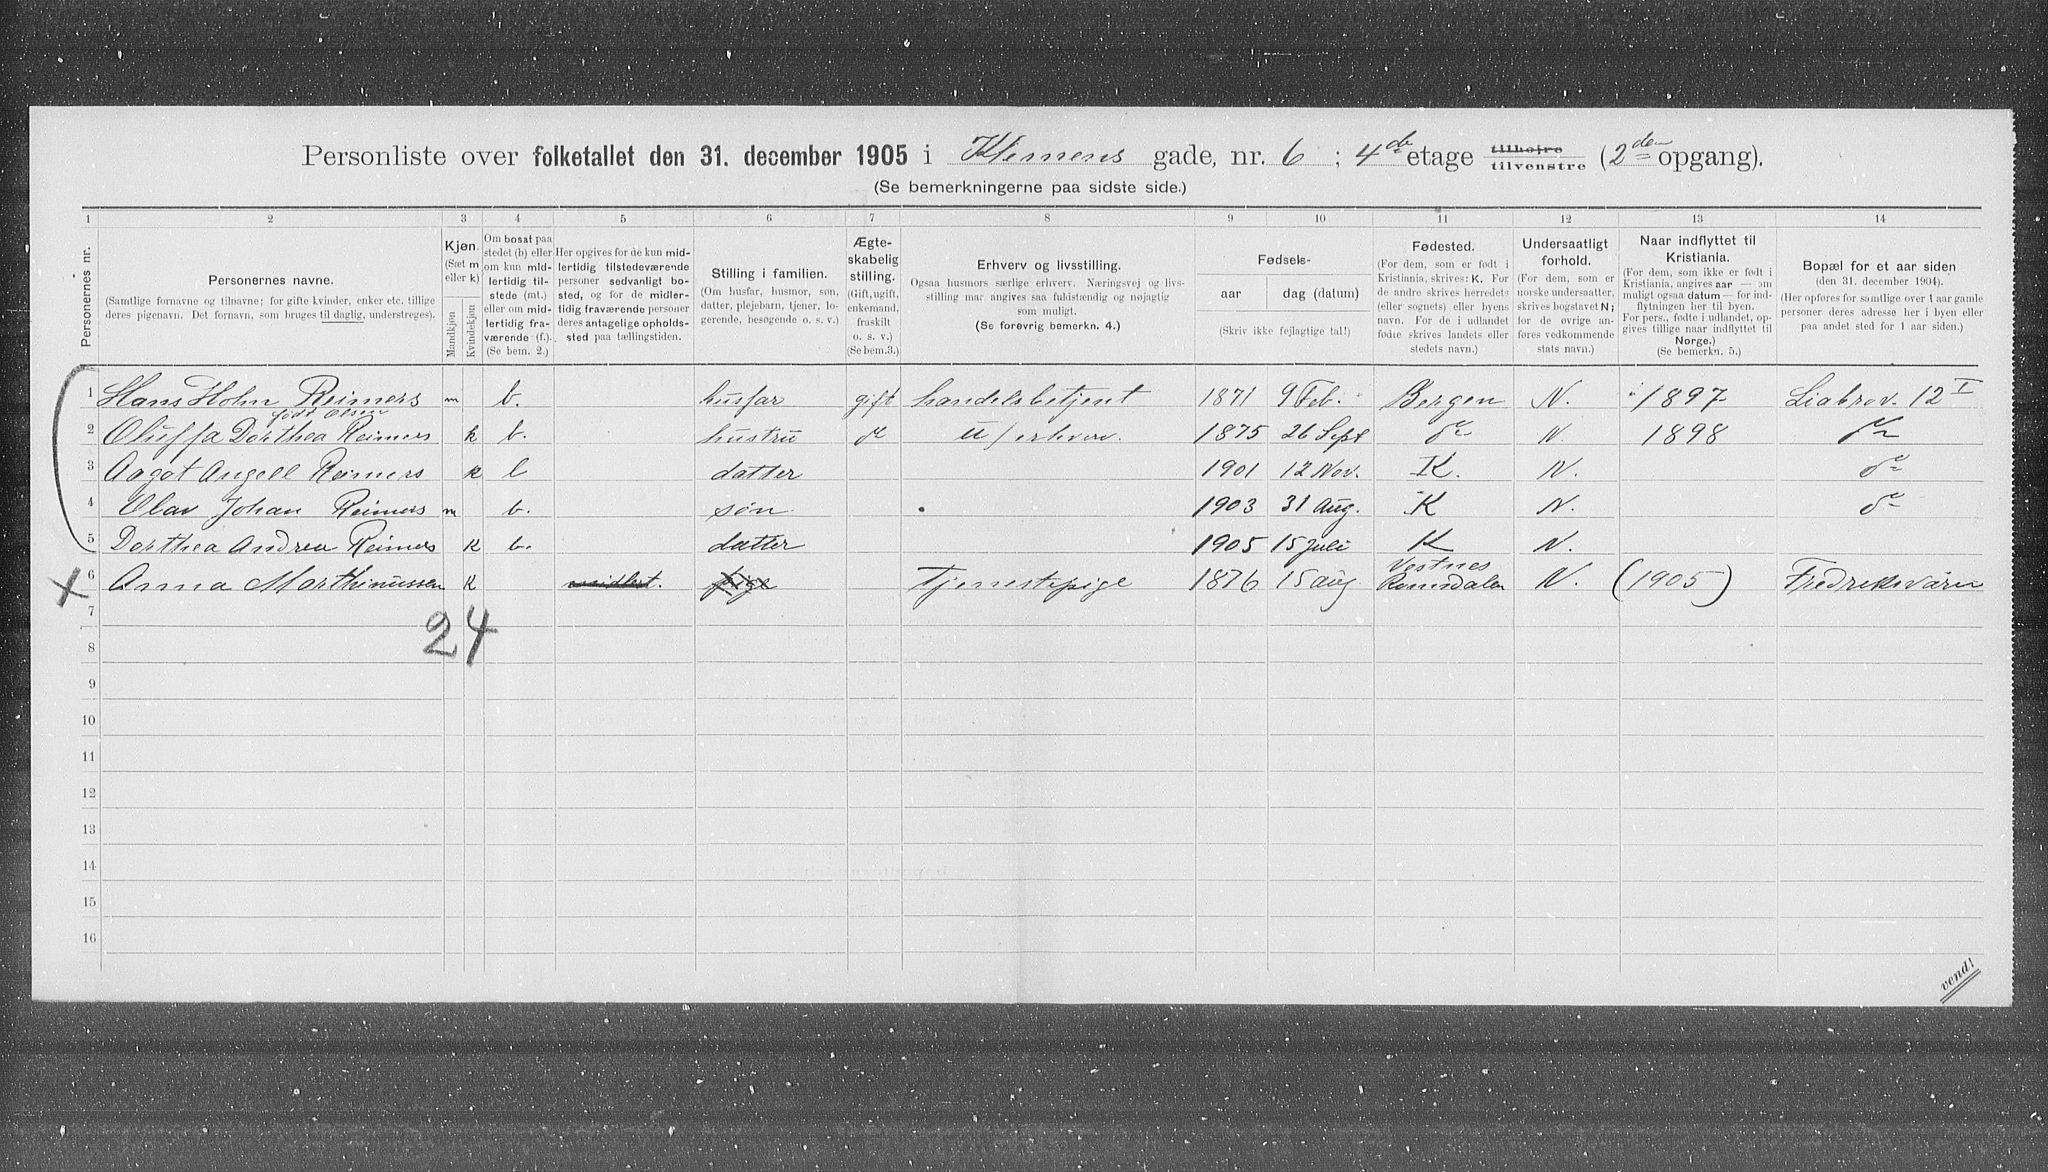 Personliste over folketallet den 31. december 1905 i Klemens gade, nr. 6 ; 4de etage tilhøire tilvenstre (2den opgang).
(Se bemerkningerne paa sidste side.)
1 2 3 4 5 6 7 8 9 10 11 12 13 14
Personernes nr.
Personernes navne.
(Samtlige fornavne og tilnavne; for gifte kvinder, enker etc. tillige deres pigenavn. Det fornavn, som bruges til daglig, understreges).
Kjøn.
(Sæt m eller k)
Mandkjøn
Kvindekjøn
Om bosat paa stedet (b) eller om kun midlertidig tilstede (mt.) eller om midlertidig fraværende (f.). (Se bem. 2.)
Her opgives for de kun midlertidig tilstedeværende personer sedvanligt bosted, og for de midlertidig fraværende personer deres antagelige opholdssted paa tællingstiden.
Stilling i familien.
(Om husfar, husmor, søn, datter, plejebarn, tjener, logerende, besøgende o. s. v.)
Ægteskabelig stilling.
(Gift, ugift, enkemand, fraskilt o. s. v.) (Se bem. 3.)
Erhverv og livsstilling.
Ogsaa husmors særlige erhverv. Næringsvej og livsstilling maa angives saa fuldstændig og nøjagtig som muligt.
(Se forøvrig bemerkn. 4.)
Fødsels-
aar
dag (datum)
(Skriv ikke fejlagtige tal!)
Fødested.
(For dem, som er født i Kristiania, skrives: K. For de andre skrives herredets (eller sognets) eller byens navn. For de i udlandet fødte skrives landets eller stedets navn.)
Undersaatligt forhold.
(For dem, som er norske undersaatter, skrives bogstavet N; for de øvrige anføres vedkommende stats navn.)
Naar indflyttet til Kristiania.
(For dem, som ikke er født i Kristiania, angives aar — om muligt ogsaa datum — for indflytningen her til byen. For pers., fødte i udlandet, opgives tillige naar indflyttet til Norge.)
(Se bemerkn. 5.)
Bopæl for et aar siden
(den 31. december 1904).
(Her opføres for samtlige over 1 aar gamle personer deres adresse her i byen eller paa andet sted for 1 aar siden.)
1 Hans Hohn Reimers m b. husfar gift handelsbetjent 1871 9 Feb. Bergen N. 1897 Liabrov. 12 I
født Olsen
2 Oluffa Dorthea Reimers k b. hustru do u/erhverv. 1875 26 Sept do N. 1898 do
3 Aagot Angell Reimers k b datter 1901 12 Nov. K. N. do
4 Olav Johan Reimers m b. søn 1903 31 Aug. K N. do
5 Dorthea Andrea Reimers k b. datter 1905 15 juli K N.
6 Anna Marthinussen k midlert. pige Tjenestepige 1876 15 aug. Vestnes Romsdalen N. (1905) Fredriksværn
7
24
8
9
10
11
12
13
14
15
16
vend!